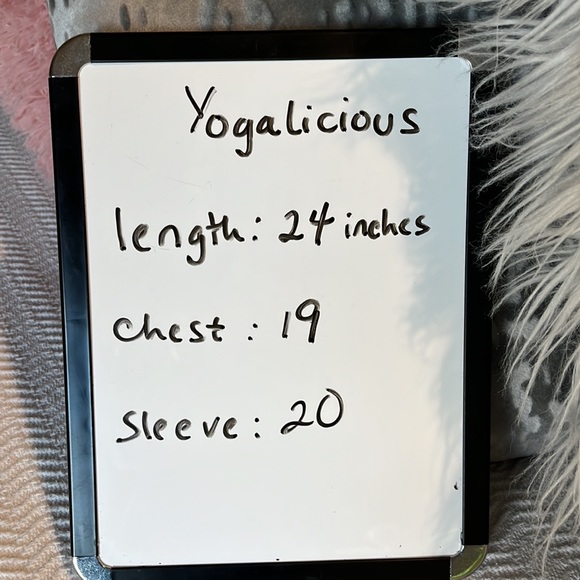 Yogalicious
length: 24 inches
chest: 19
sleeve: 20